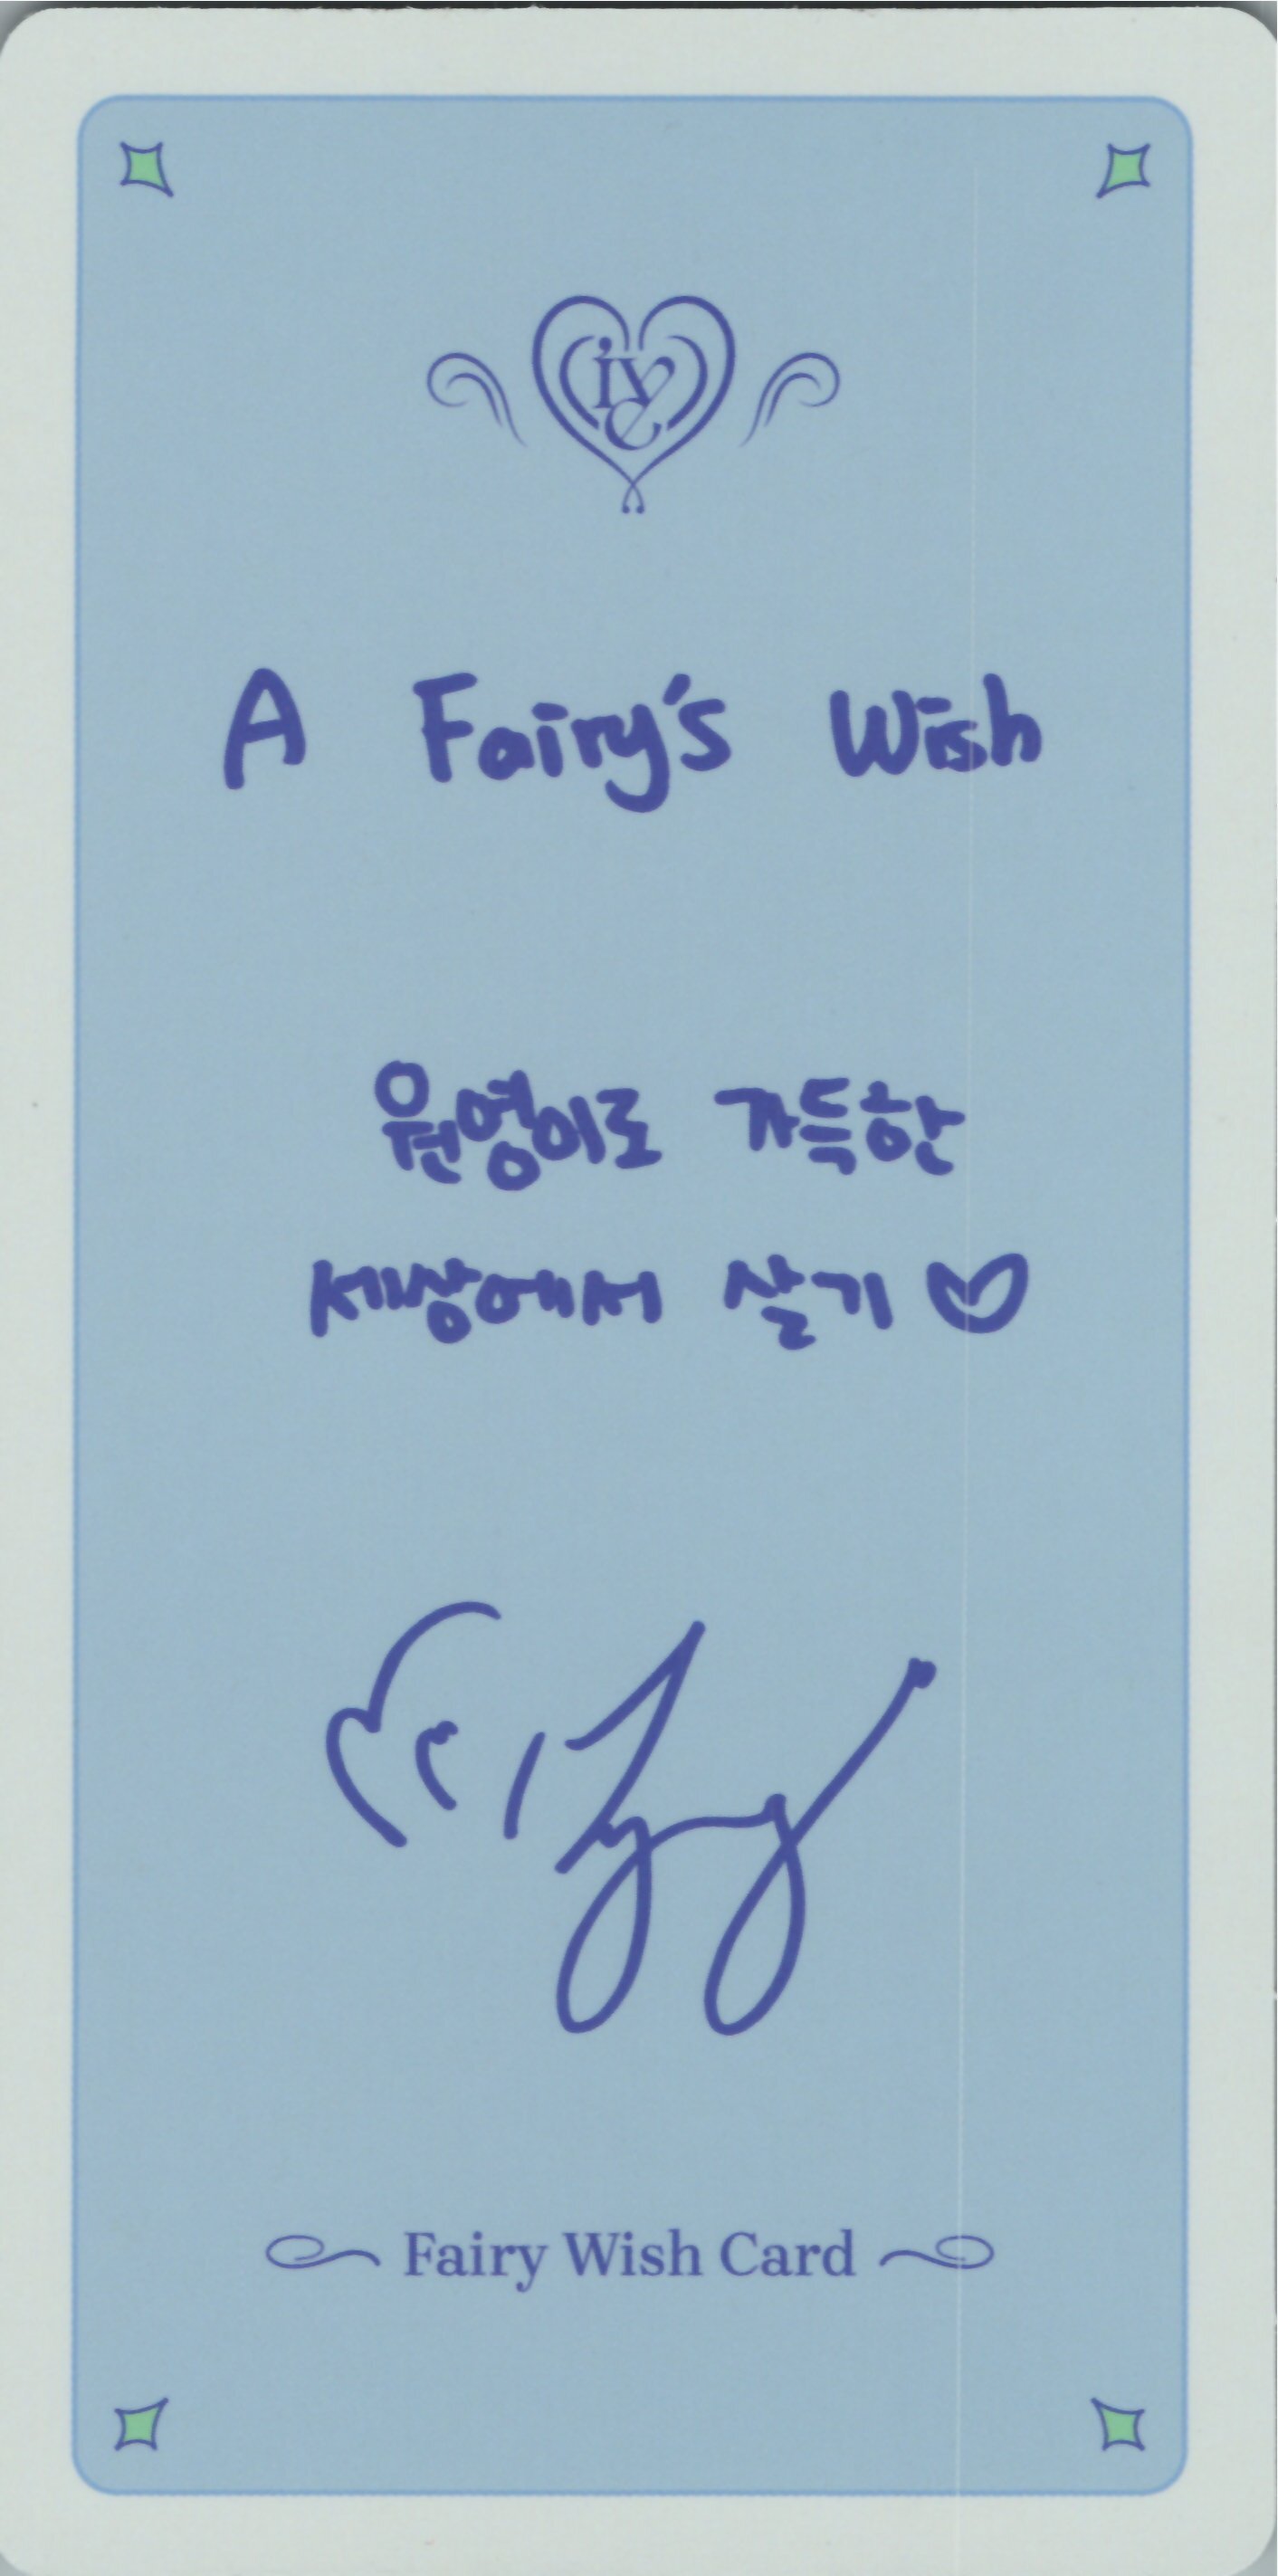 ive
A Fairy's Wish
원영이로 가득한
세상에서 살기♡
Fairy Wish Card